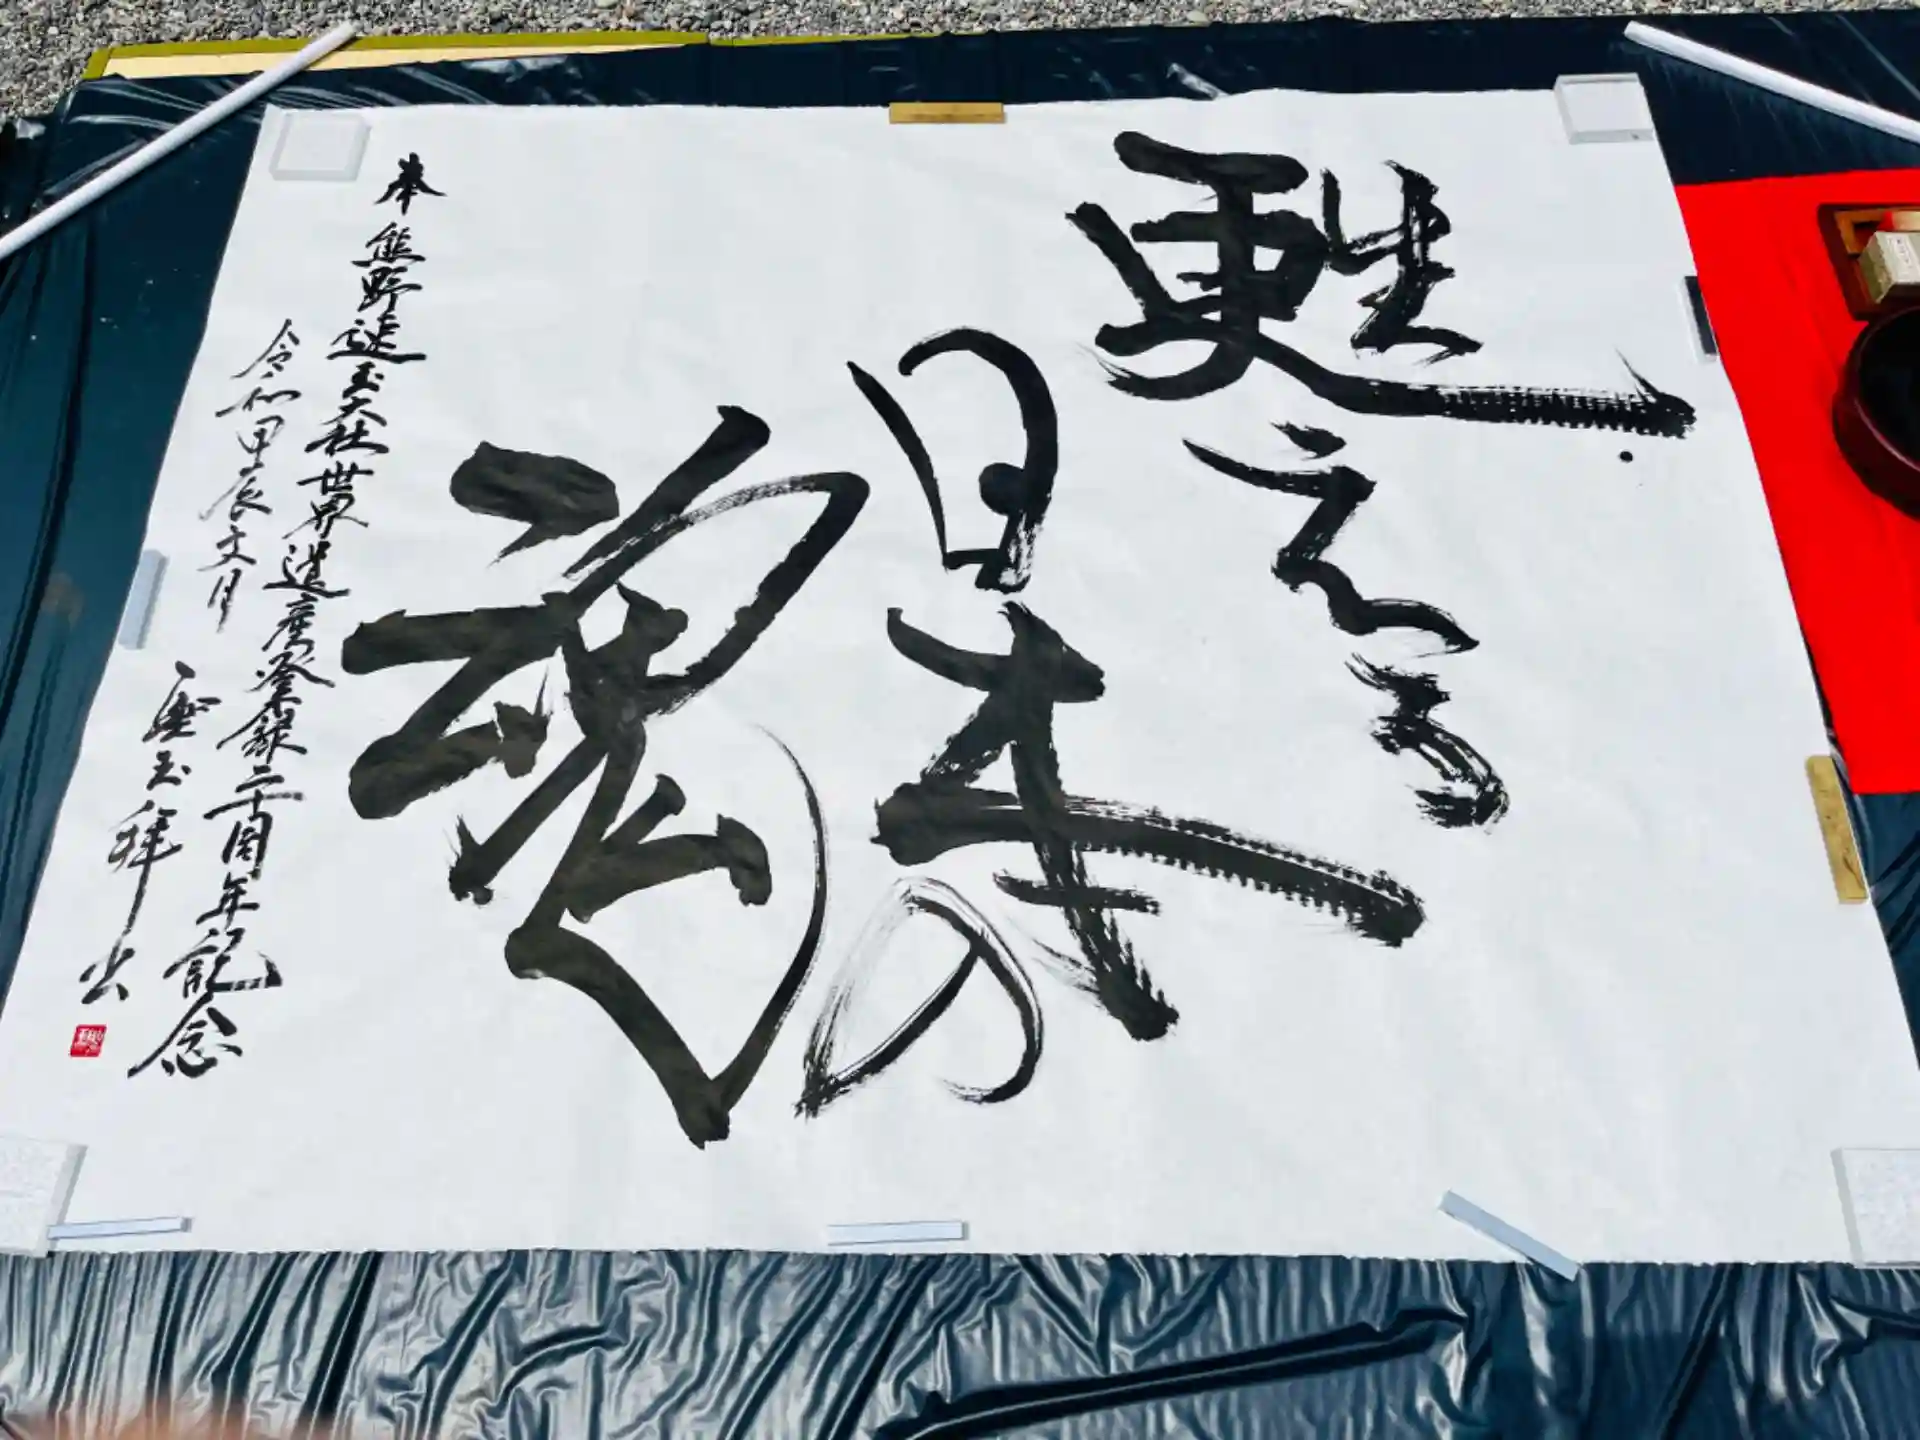 甦える
日本の
魂
奉 熊野速玉大社世界遺産登録二十周年記念
令和甲辰文月
玉拜書